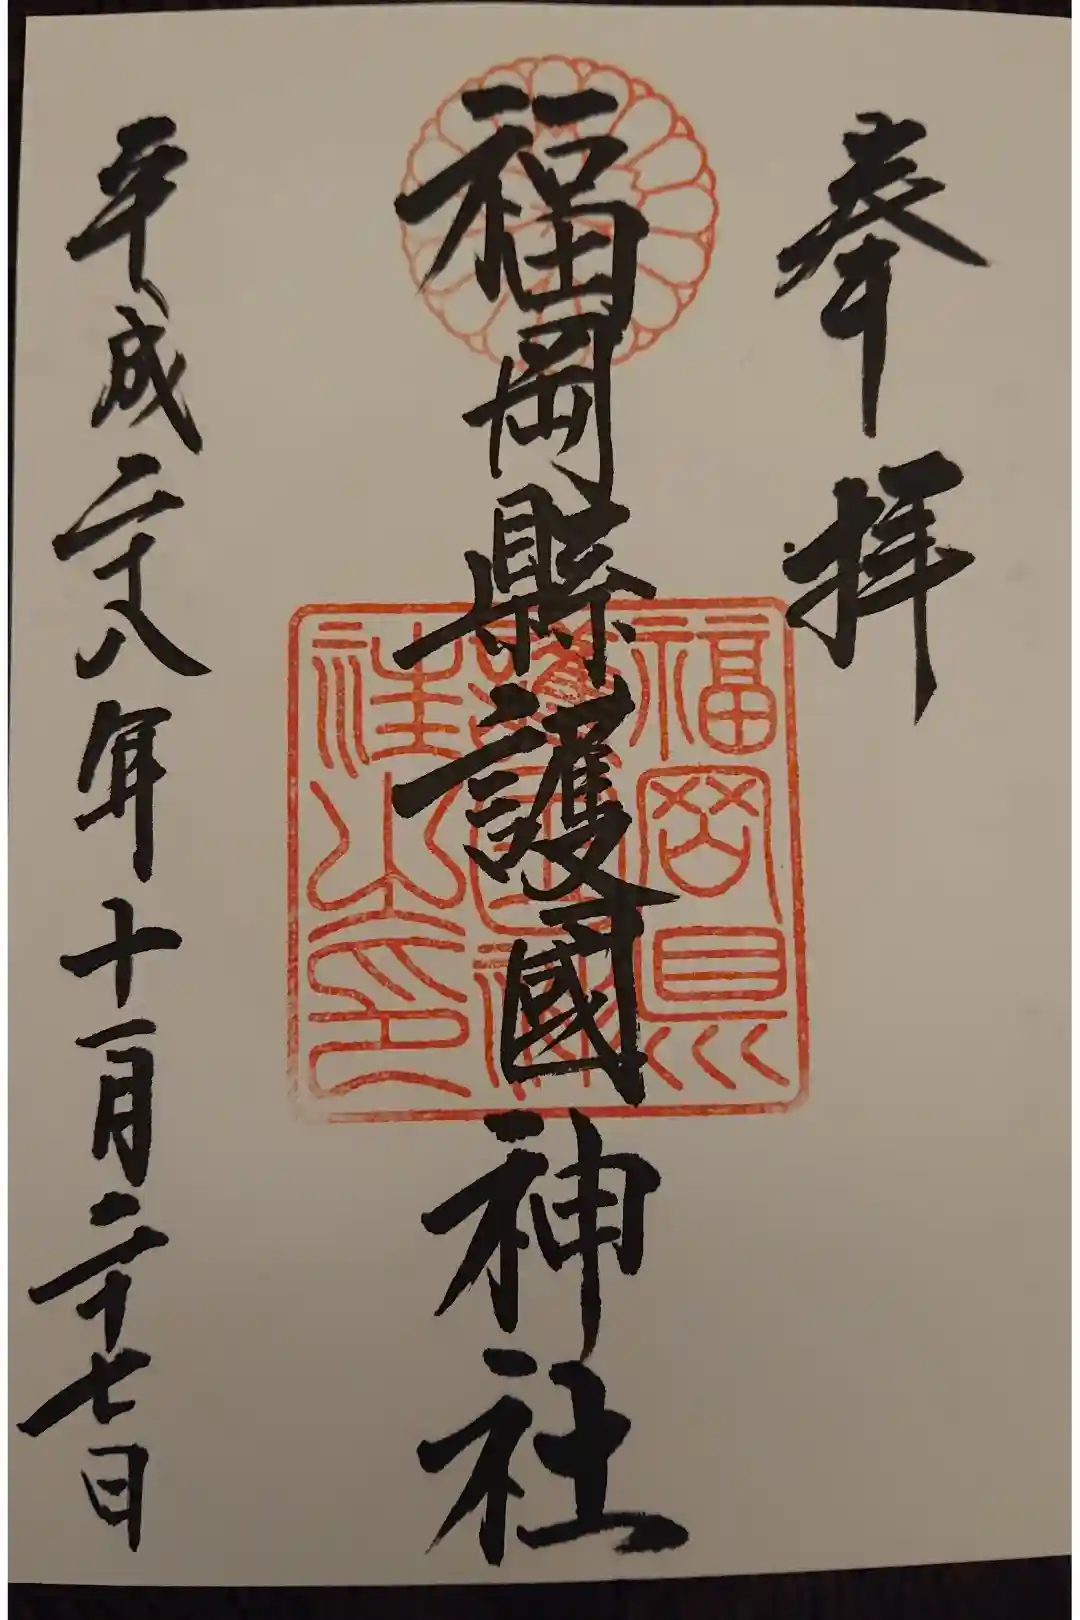 奉拝
福岡縣護國神社
平成二十八年十一月二十七日
福岡県
護国神
社之印